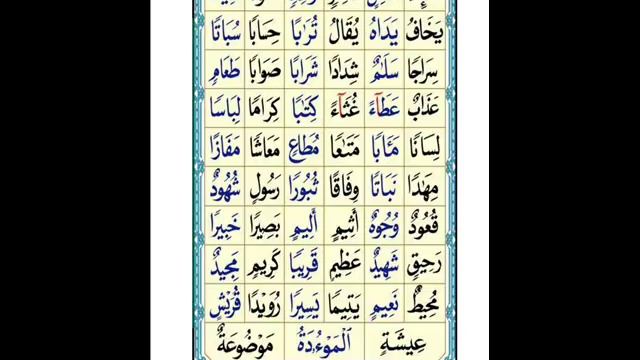 يَخَافُ يَدَاهُ يُقَالُ تُرَٰبًا حِسَابًا سُبَاتًا
سِرَاجًا سَلَٰمٌ شِدَادًا شَرَابًا صَوَابًا طَعَامٍ
عَذَابٌ عَطَآءً غُثَآءً كِتَٰبًا كِرَامًا لِبَاسًا
لِسَانًا مَـَٔابًا مَتَٰعًا مُطَاعٍ مَعَاشًا مَفَازًا
مِهَٰدًا نَبَاتًا وِفَاقًا ثُبُورًا رَسُولٍ شُهُودٌ
قُعُودٌ وُجُوهٌ أَثِيمٍ أَلِيمٍ بَصِيرًا خَبِيرًا
رَحِيقٍ شَهِيدٌ عَظِيمٍ قَرِيبًا كَرِيمٍ مَجِيدٌ
مُحِيطٌ نَعِيمٍ يَتِيمًا يَسِيرًا رُوَيْدًا قُرَيْشٍ
عِيشَةٍ الْمَوْءُۥدَةُ مَوْضُوعَةٌ